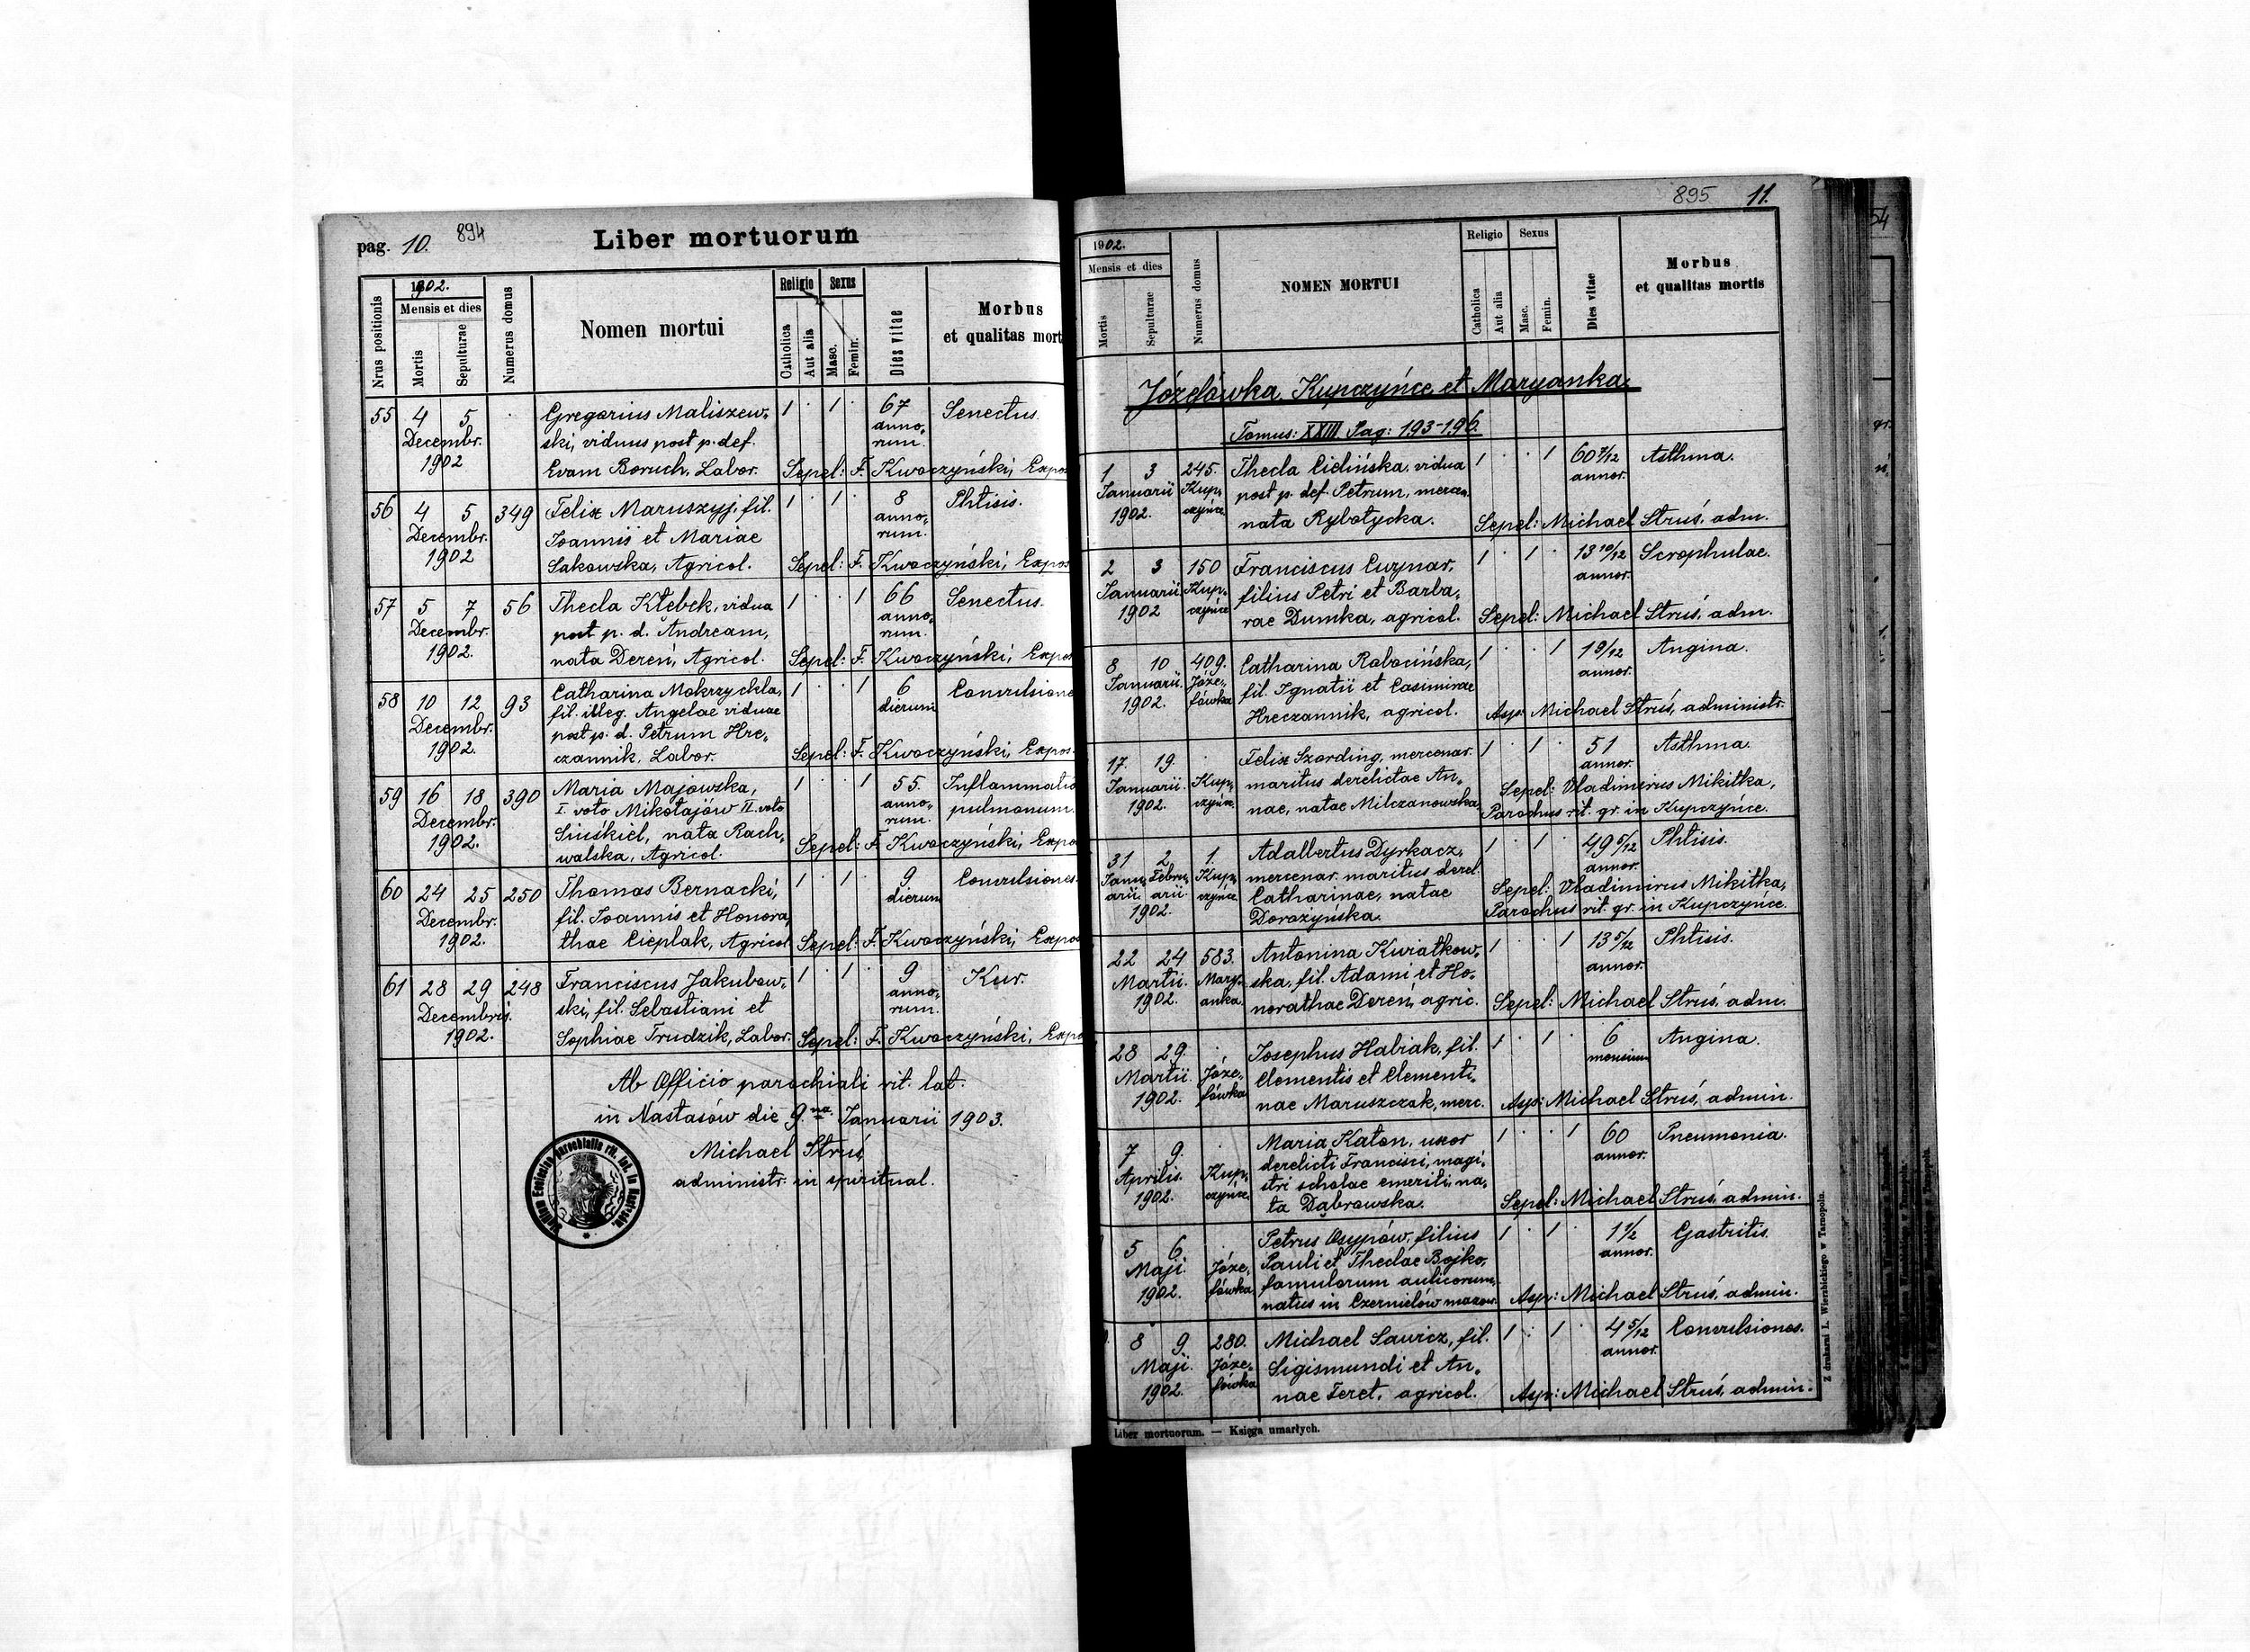 pag. 10. 894 Liber mortuorum
Nrus positionis
1902.
Mensis et dies
Mortis
Sepulturae
Numerus domus
Nomen mortui
Religio
Catholica
Aut alia
Sexus
Masc.
Femin.
Dies vitae
Morbus
et qualitas mort
55 4 5 Gregorius Maliszew- 1 · 1 · 67 Senectus.
Decembr. ski, viduus post p. def. anno-
1902 Evam Boruch, Labor. rum. Sepel: F. Kwoczyński, Expos
56 4 5 349 Felix Maruszyj, fil. 1 · 1 · 8 Phtisis.
Decembr. Joannis et Mariae anno-
1902 Sakowska, Agricol. rum. Sepel: F. Kwoczyński, Expos
57 5 7 56 Thecla Kłębek, vidua 1 · · 1 66 Senectus.
Decembr. post p. d. Andream, anno-
1902. nata Dereń, Agricol. rum. Sepel: F. Kwoczyński, Expos
58 10 12 93 Catharina Mokrzyckla, 1 · · 1 6 Convulsione
Decembr. fil. illeg. Angelae viduae dierum
1902. post p. d. Petrum Hre-
czannik, Labor. Sepel: F. Kwoczyński, Expos.
59 16 18 390 Maria Majowska, 1 · · 1 55. Inflammatio
Decembr. I. voto Mikołajów II. voto anno- pulmonum.
1902. Siuśkiel, nata Rach- rum.
walska, Agricol. Sepel: F. Kwoczyński, Expo
60 24 25 250 Thomas Bernacki, 1 · 1 · 9 Convulsiones.
Decembr. fil. Joannis et Honora- dierum
1902. thae Cieplak, Agricol. Sepel: F. Kwoczyński, Expos
61 28 29 248 Franciscus Jakubow- 1 · 1 · 9 Kur.
Decembris. ski, fil. Sebastiani et anno-
1902. Sophiae Trudzik, Labor. rum. Sepel: F. Kwoczyński, Expo
Ab Officio parochiali rit. lat.
in Nastasów die 9.na Januarii 1903.
Michael Struś
administr. in spiritual.
895 11.
1902.
Mensis et dies
Mortis
Sepulturae
Numerus domus
NOMEN MORTUI
Religio
Catholica
Aut alia
Sexus
Masc.
Femin.
Dies vitae
Morbus
et qualitas mortis
Józefówka, Kupczyńce, et Maryanka.
Tomus: XXIII Pag: 193-196.
1 3 245. Thecla Cielińska, vidua 1 · · 1 60 7/12 Asthma.
Januarii Kup- post p. def. Petrum, mercen. annor.
1902. czyńce nata Rybotycka. Sepel: Michael Struś, adm.
2 3 150 Franciscus Cuzynar, 1 · 1 · 13 10/12 Scrophulae.
Januarii Kup- filius Petri et Barba- annor.
1902 czyńce rae Dumka, agricol. Sepel: Michael Struś, adm.
8 10 409. Catharina Robocińska, 1 · · 1 1 9/12 Angina.
Januarii. Józe- fil. Ignatii et Casimirae annor.
1902. fówka Hreczannik, agricol. Asp: Michael Struś, administr.
17. 19. · Felix Szording, mercenar. 1 · 1 · 51 Asthma.
Januarii. Kup- maritus derelictae An- annor.
1902. czyńce. nae, natae Milczanowska Sepel: Vladimirus Mikitka,
Parochus rit. gr. in Kupczyńce.
31 2 1. Adalbertus Dyrkacz, 1 · 1 · 49 5/12 Phtisis.
Janu- Febru- Kup- mercenar. maritus derel. annor.
arii. arii. czyńce. Catharinae, natae Sepel: Vladimirus Mikitka,
1902. Dorożyńska. Parochus rit. gr. in Kupczyńce.
22 24 583. Antonina Kwiatkow- 1 · · 1 13 5/12 Phtisis.
Martii. Mary- ska, fil. Adami et Ho- annor.
1902. anka. norathae Dereń, agric. Sepel: Michael Struś, adm.
28 29. · Josephus Habiak, fil. 1 · 1 · 6 Angina.
Martii. Józe- Clementis et Clementi- mensium
1902. fówka nae Maruszczak, merc. Asp: Michael Struś, admin.
7 9. · Maria Katon, uxor 1 · · 1 60 Pneumonia.
Aprilis. Kup- derelicti Francisci, magi- annor.
1902. czyńce. stri scholae emeriti, na-
ta Dąbrowska. Sepel: Michael Struś, admin.
5 6. · Petrus Osypów, filius 1 · 1 · 1 1/2 Gastritis.
Maji. Józe- Pauli et Theclae Bojko, annor.
1902. fówka famulorum aulicorum,
natus in Czernielów mazow. Asp: Michael Struś, admin.
8 9. 280. Michael Sawicz, fil. 1 · 1 · 4 5/12 Convulsiones.
Maji. Józe- Sigismundi et An- annor.
1902. fówka nae Feret, agricol. Asp: Michael Struś, admin.
Liber mortuorum. — Księga umarłych.
Z drukarni L. Wierzbickiego w Tarnopolu.